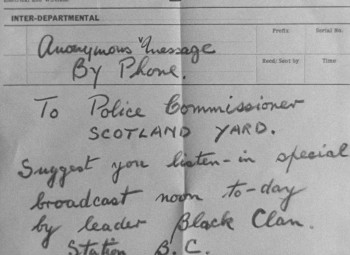 INTER-DEPARTMENTAL
Prefix: Serial No.
Anonymous "Message
By Phone.
Book: Sent by Time
To Police Commissioner
SCOTLAND YARD.
Suggest you listen-in special
broadcast noon to-day
by leader Black Clan.
Station B.C.